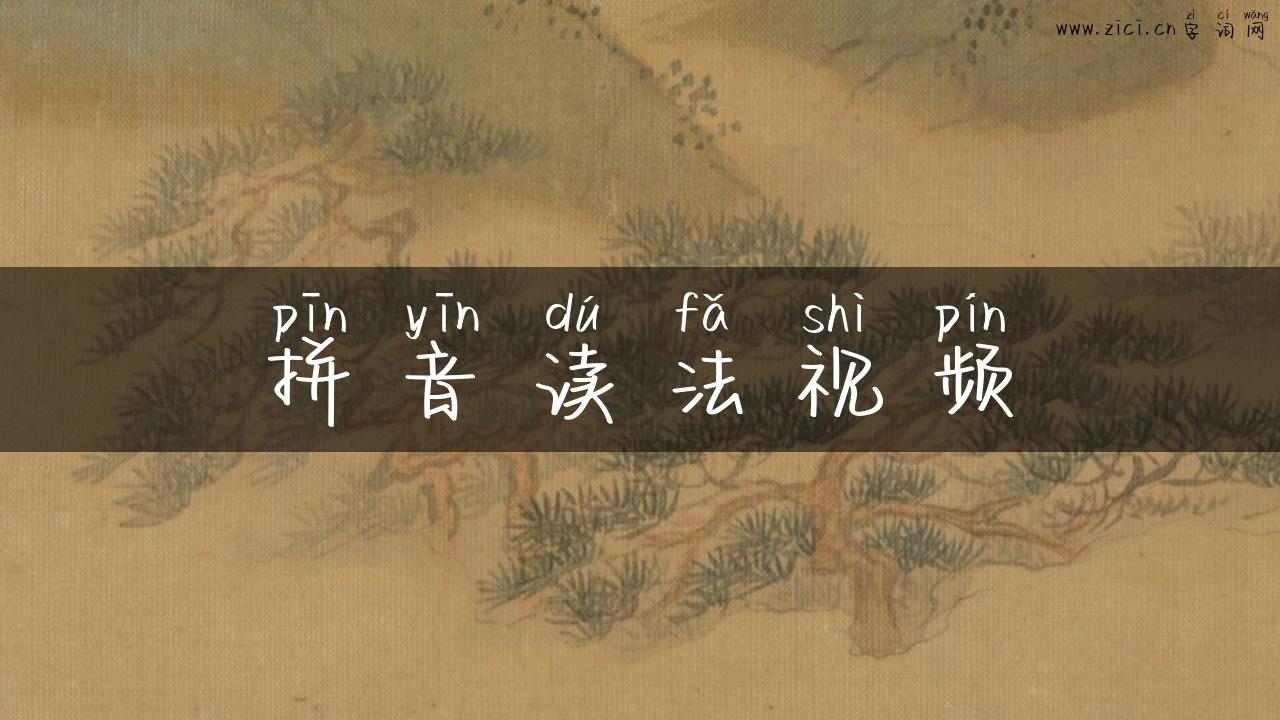 zì cí wǎng
www.zici.cn 字 词 网
pīn yīn dú fǎ shì pín
拼 音 读 法 视 频